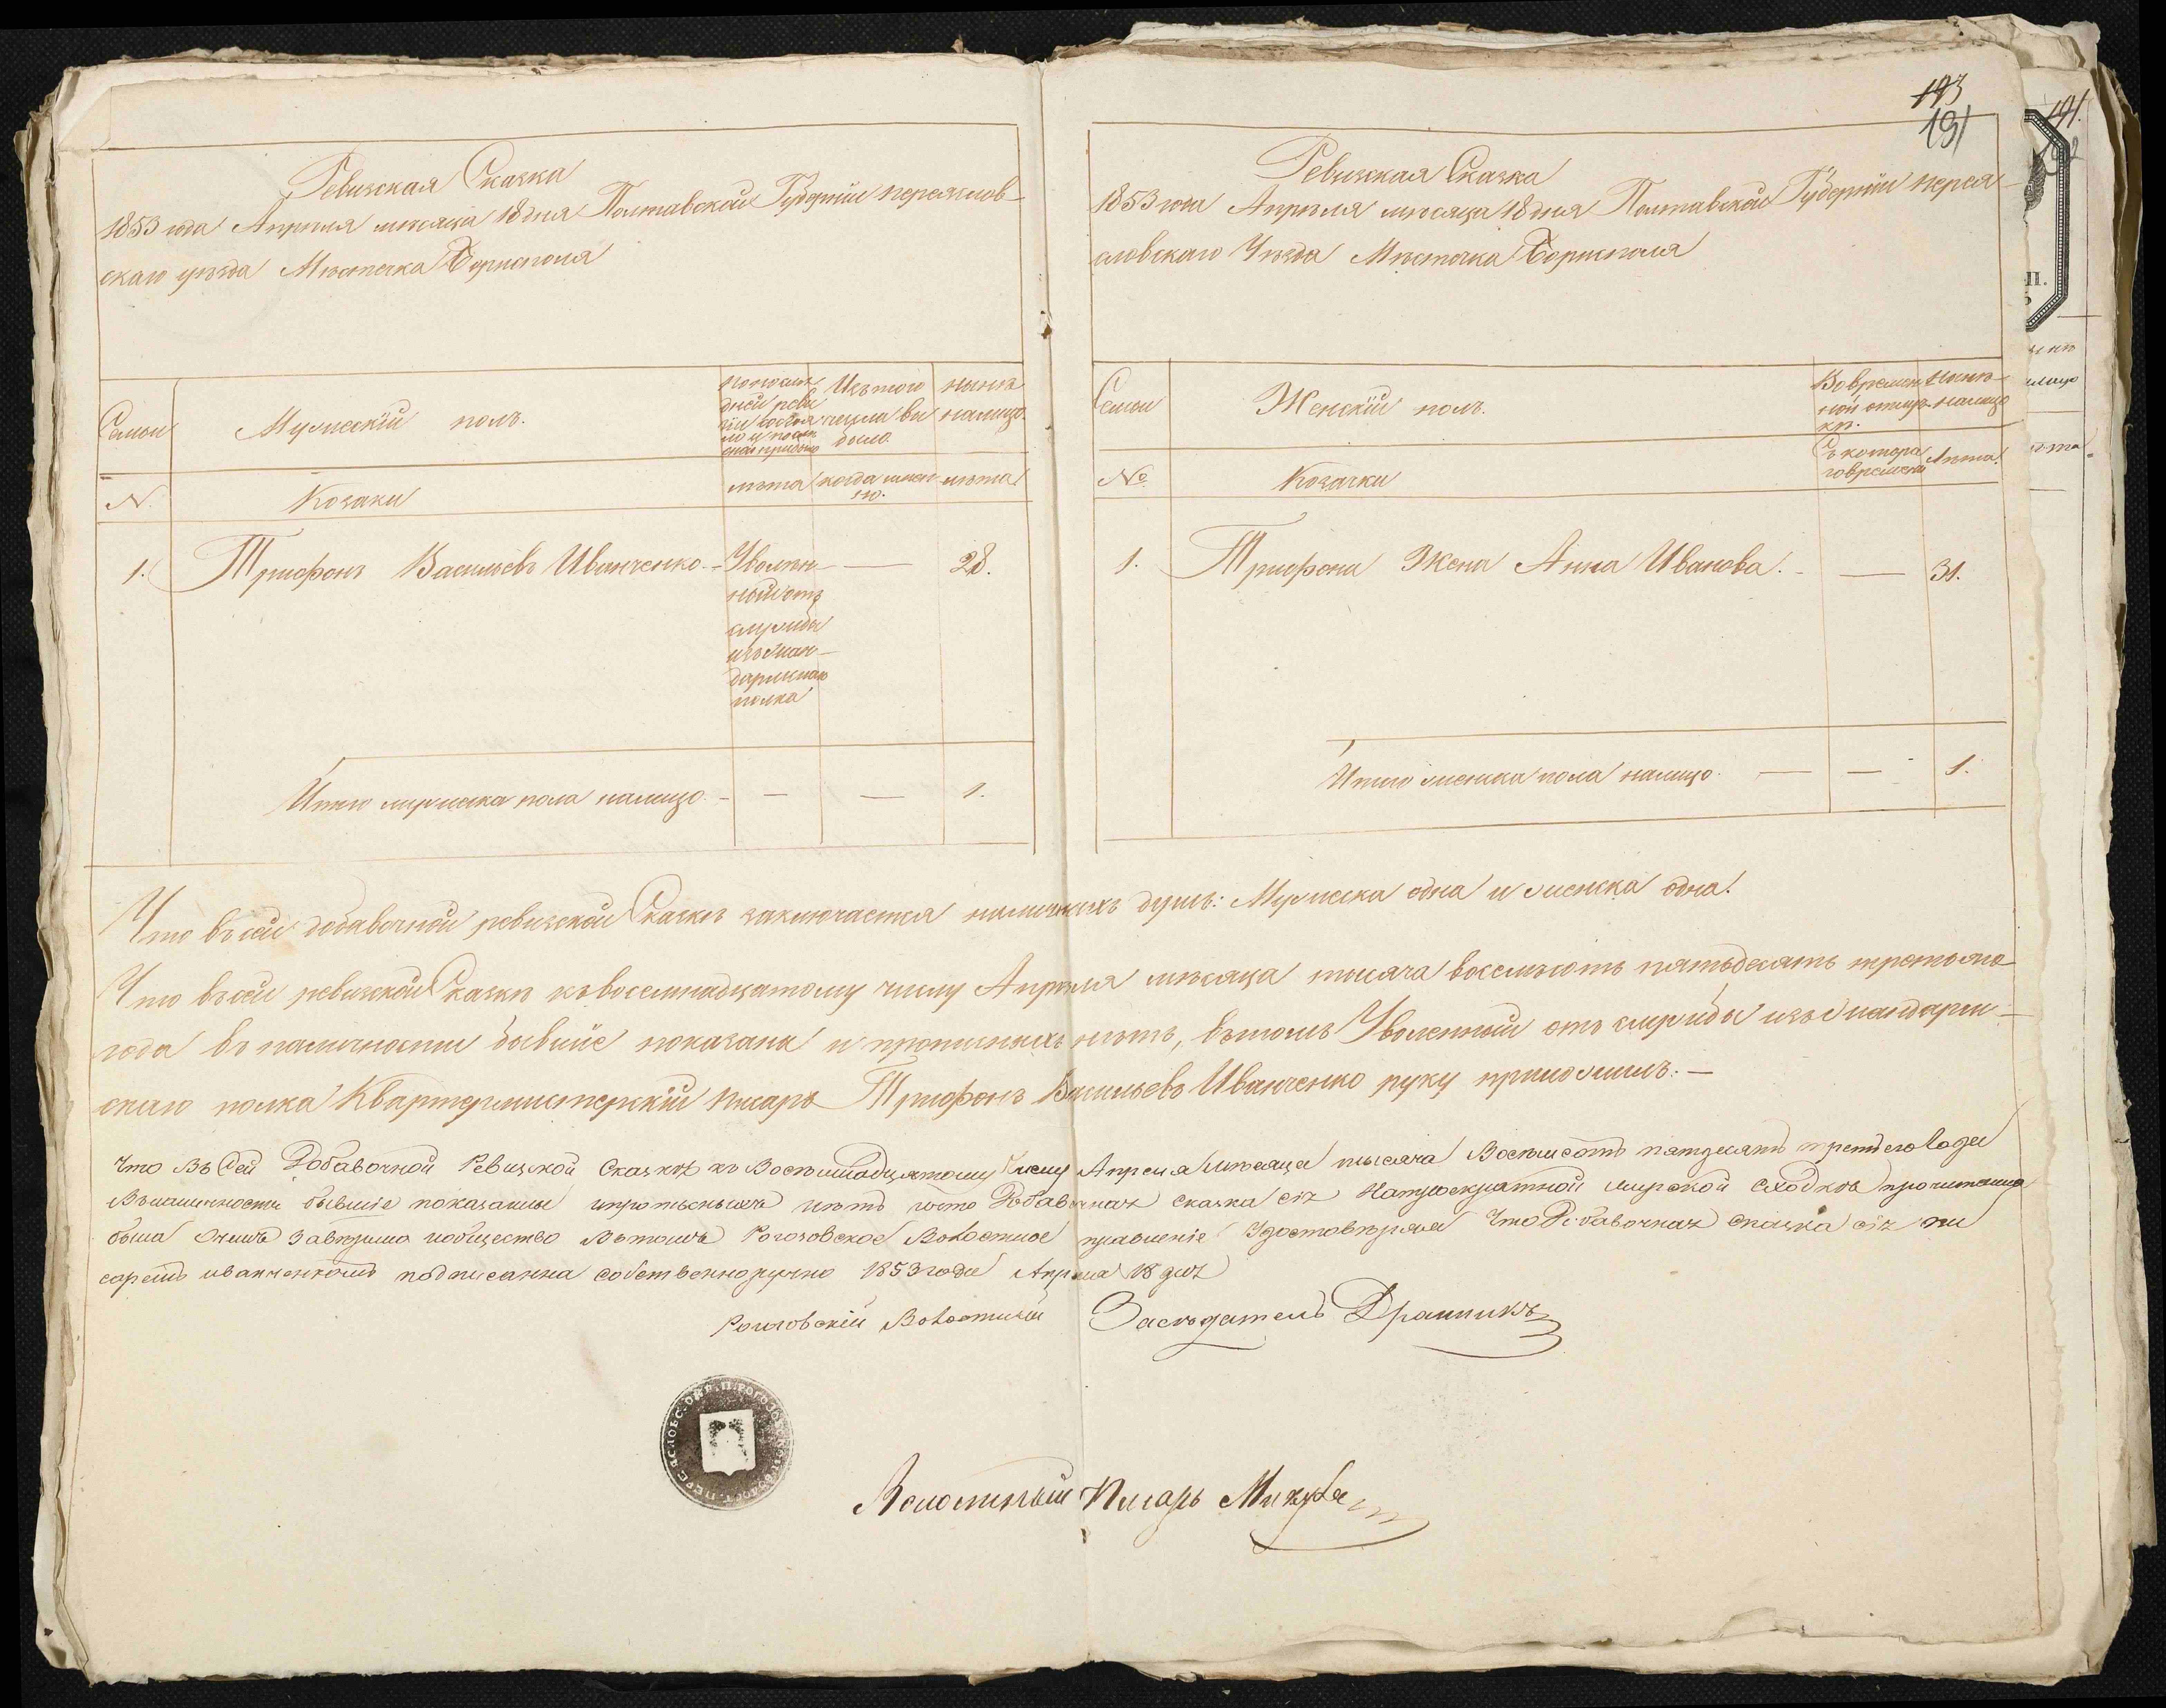 Ревизская Сказка
1853 года Апреля месяца 18 дня Полтавской Губерніи переяслов-
скаго уезда Местечка Борисполя
Семьи
Мужескій полъ.
По послѣ
дней реви
зіи состоя
ло и после
оной прибыло
Изъ того
числа вы
было
ныне
налицо.
N.
Козаки
лѣта
когда имен
но.
лѣта
1.
Трифонъ Васильевъ Иванченко. -
Уволен-
ный отъ
службы
изъ жан-
дармскаго
полка
—
28.
Итого мужеска пола налицо. -
—
—
1.
193
191
Ревизская Сказка
1853 года Апрѣля месяца 18 дня Полтавской Губерніи перея-
словскаго Уезда Местечка Борисполя
Семьи
Женскій полъ.
Во времен
ной отлуч
кѣ.
Ныне-
налицо
№
Козачки
Съ котора
го времени
Лѣта.
1.
Трифона Жена Анна Иванова. -
—
31.
Итого женска пола налицо. —
—
1.
Что въ сей добавочной ревизской Сказкѣ заключается наличныхъ душъ: Мужеска одна и женска одна.
Что въ сей ревизской Сказкѣ къ восемнадцатому числу Апрѣля мѣсяца тысяча восемьсотъ пятьдесятъ третьяго
года въ наличности бывшіе показаны и прописныхъ нѣтъ, въ томъ Уволенный отъ службы изъ жандарм-
скаго полка Квартермистерскій писарь Трифонъ Васильевъ Иванченко руку приложилъ. —
Что Въ Сей Добавочной Ревизкой Сказкѣ къ Восемнадцятому Числу Апреля Мѣсяца тысяча Восемьсотъ пятдесятъ третьего Года
Въ наличности бывшіе показанны и прописныхъ нѣтъ что Добавочная сказка сія На мирской сходкѣ прочитанна
была и общество Въ томъ Рогозовское Волостное правленіе Удостовѣряя Что Добавочная сказка сія пи
саремъ иванченкомъ подписанна собственноручно 1853 года Апреля 18 дня
Рогозовскій Волостный Засѣдатель Дранникъ
Волостный Писарь
191.
П.